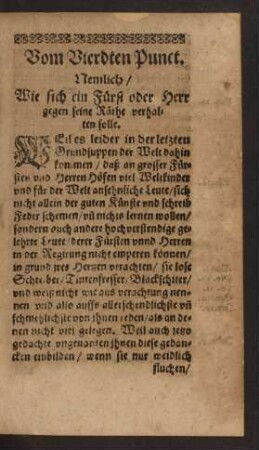 Vom Vierdten Punct.
Nemlich/
Wie sich ein Fürst oder Herr
gegen seine Räthe verhal-
ten solle.
WEil es leider in der letzten
Grundsuppen der Welt dahin
kommen/ daß an grosser Für-
sten vnd Herren Höfen viel Weltkinder
vnd für der Welt ansehnliche Leute/ sich
nicht allein der guten Künste vnd schreib
Feder schemen/ vñ nichts lernen wollen/
sondern auch andere hochverstendige ge-
lehrte Leute/ derer Fürsten vnnd Herren
in der Regirung nicht emperen können/
in grund jres Hertzen verachten/ sie lose
Schreiber/ Tintenfresser/ Blackschiter/
vnd weiß nicht wie aus verachtung nen-
nen vnd also auffs allerschendlichste vñ
schmehlichste von jhnen reden/ als an de-
nen nicht viel gelegen. Weil auch jetzo
gedachte vngenanten jhnen diese gedan-
cken einbilden/ wenn sie nur weidlich
fluchen/